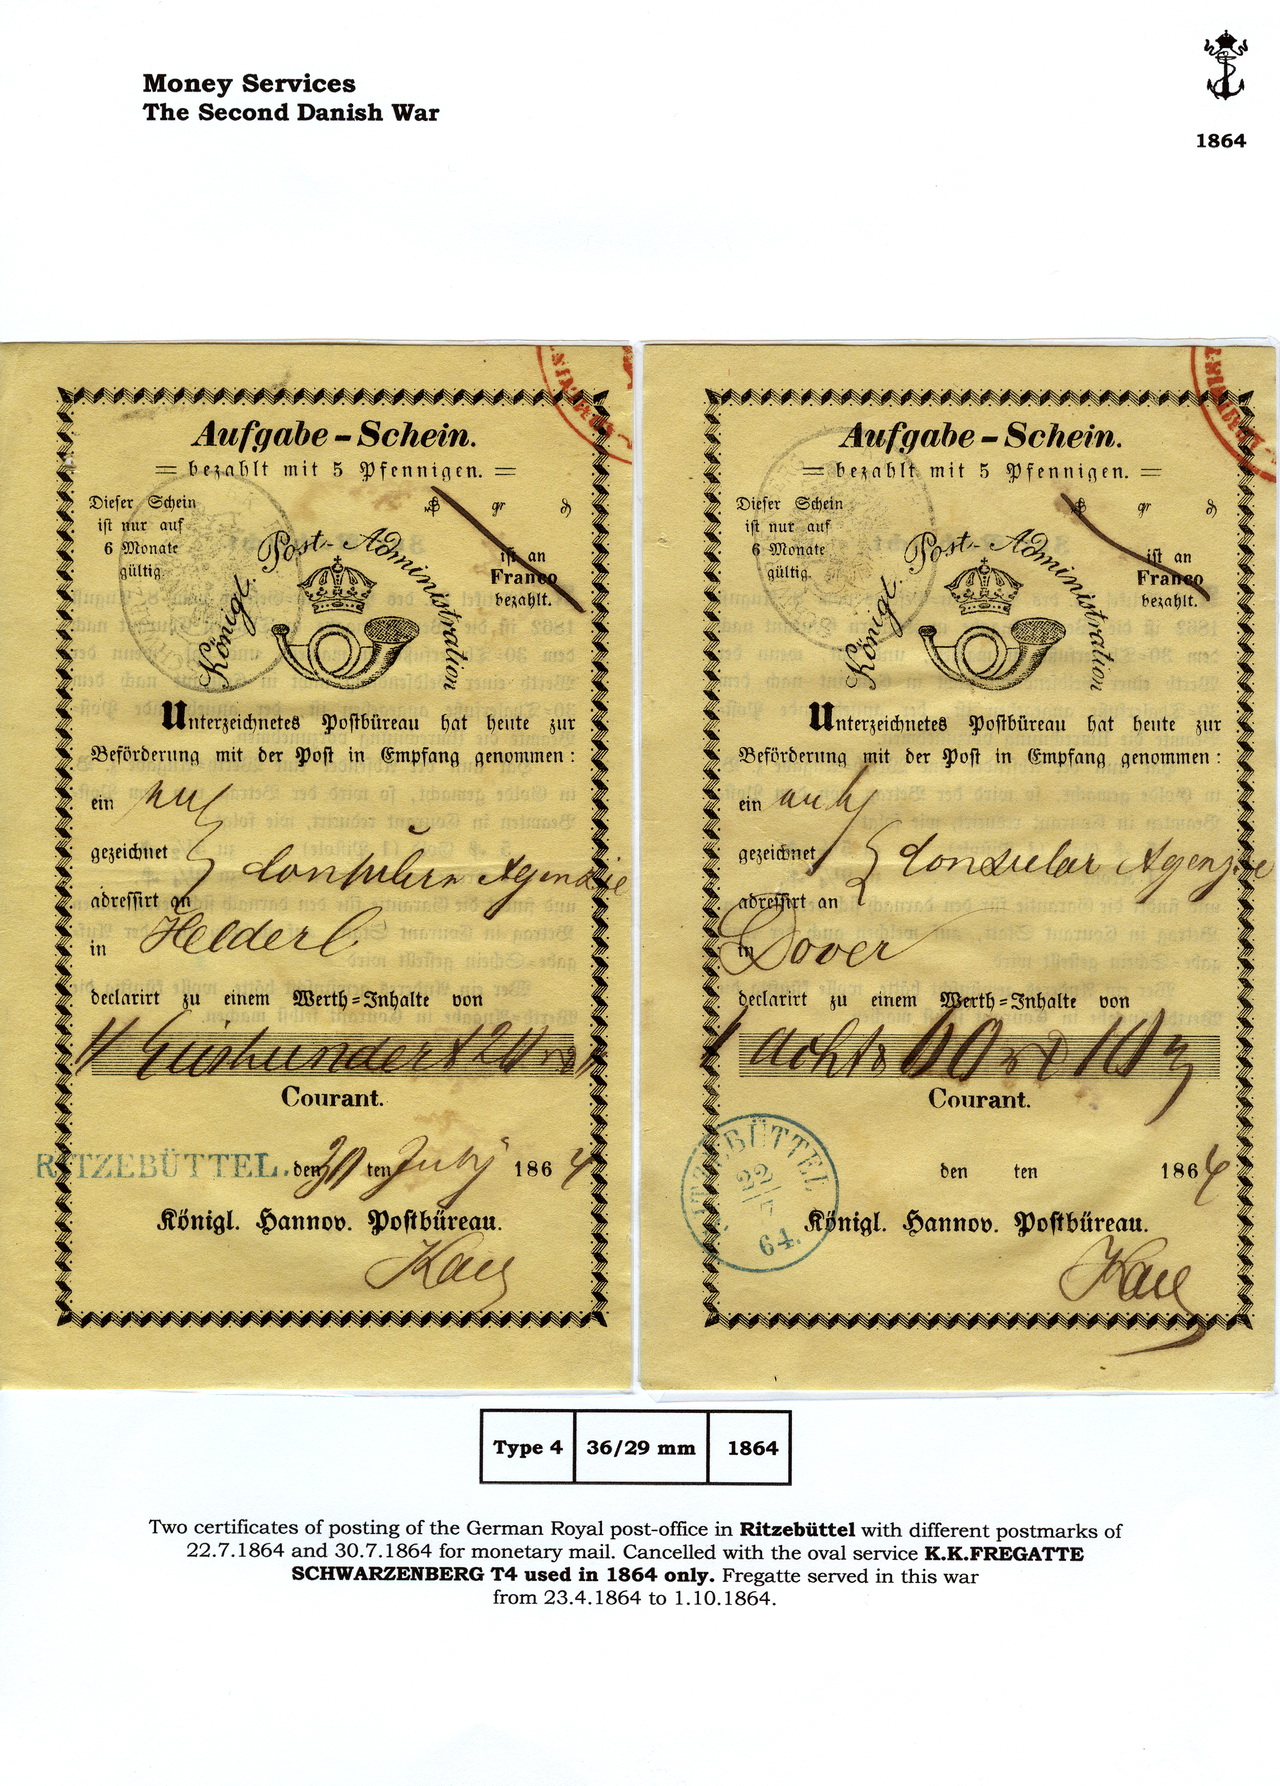 Money Services
The Second Danish War
1864
Aufgabe-Schein.
= bezahlt mit 5 Pfennigen. =
Dieser Schein
ist nur auf
6 Monate
gültig.
gr
ist an
Franco
bezahlt.
Königl. Post-Administration
Unterzeichnetes Postbüreau hat heute zur
Beförderung mit der Post in Empfang genommen:
ein
gezeichnet
adressirt an Consular Agenzie
in Helder
declarirt zu einem Werth=Inhalte von
Courant.
RITZEBÜTTEL. den 30 ten July 1864
Königl. Hannov. Postbüreau.
Aufgabe-Schein.
= bezahlt mit 5 Pfennigen. =
Dieser Schein
ist nur auf
6 Monate
gültig.
gr
ist an
Franco
bezahlt.
Königl. Post-Administration
Unterzeichnetes Postbüreau hat heute zur
Beförderung mit der Post in Empfang genommen:
ein
gezeichnet
adressirt an Consular Agenzie
in Dover
declarirt zu einem Werth=Inhalte von
Courant.
RITZEBÜTTEL
22
7
64.
den ten 1864
Königl. Hannov. Postbüreau.
Type 4 36/29 mm 1864
Two certificates of posting of the German Royal post-office in Ritzebüttel with different postmarks of
22.7.1864 and 30.7.1864 for monetary mail. Cancelled with the oval service K.K.FREGATTE
SCHWARZENBERG T4 used in 1864 only. Fregatte served in this war
from 23.4.1864 to 1.10.1864.